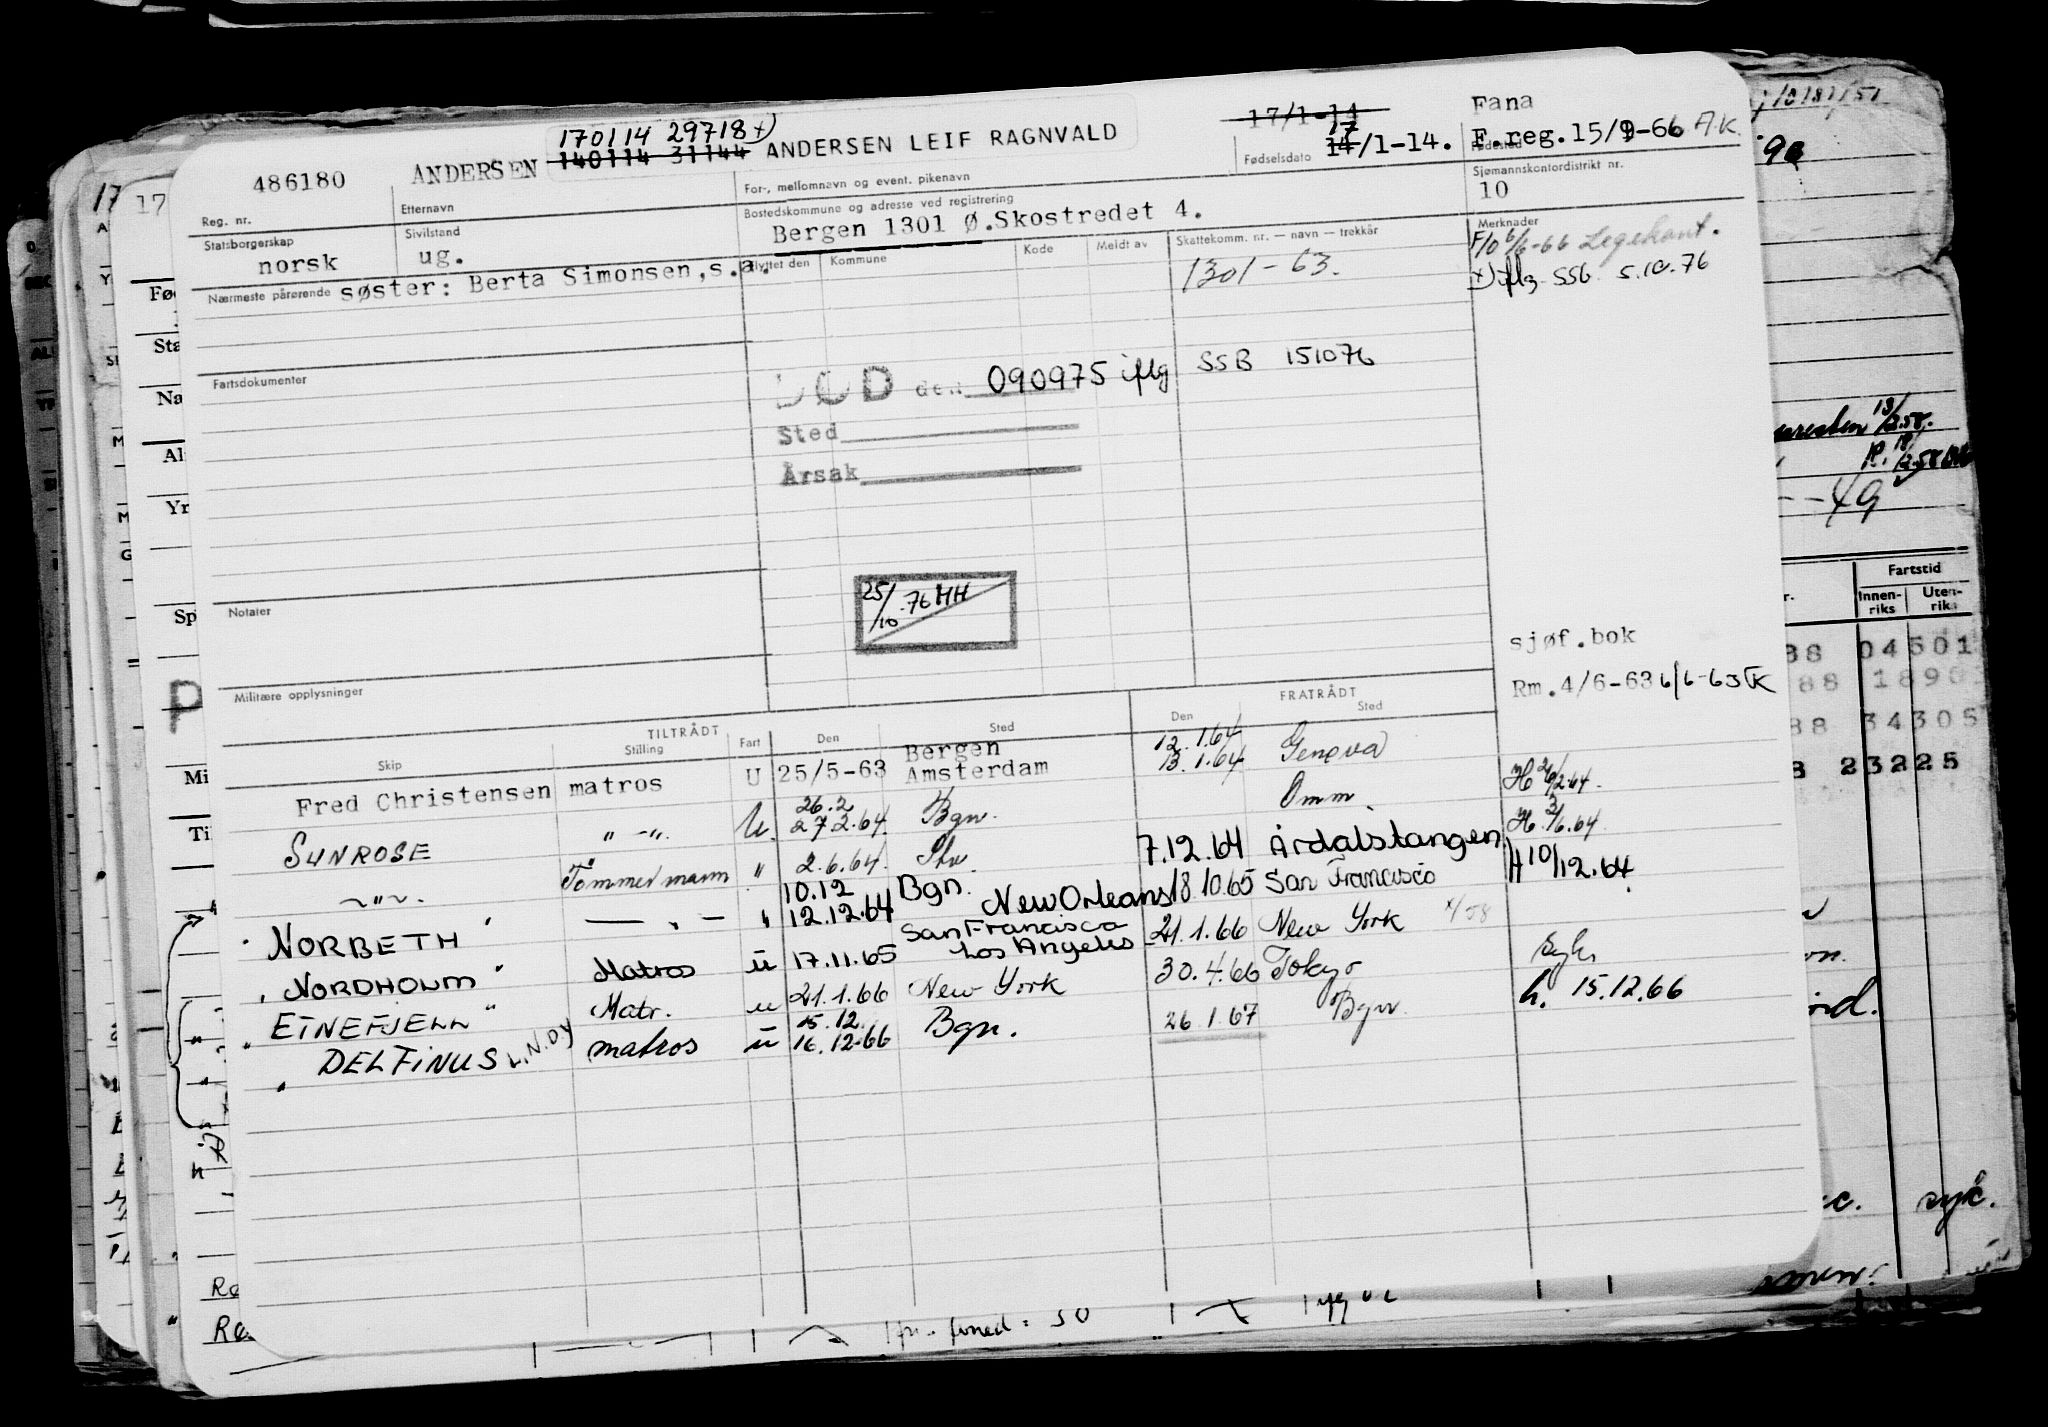 170114 29718 x)
140114 31144
ANDERSEN ANDERSEN LEIF RAGNVALD
17/1-14
17
Fødselsdato 14/1-14.
Fana
F.reg. 15/9-66 A.K.
Fødested
486180
Reg. nr.
Etternavn
For-, mellomnavn og event. pikenavn
Sjømannskontordistrikt nr.
10
Statsborgerskap
norsk
Sivilstand
ug.
Bostedskommune og adresse ved registrering
Bergen 1301 Ø.Skostredet 4.
Nærmeste pårørende søster: Berta Simonsen,s.a.
Flyttet den
Kommune
Kode
Meldt av
Skattekomm. nr. — navn — trekkår
1301-63.
Merknader
F/O 6/6-66 Legekont.
x) iflg SSB 5.10.76
Fartsdokumenter
DØD den 090975 iflg SSB 151076
Sted
Årsak
25/10-76 HH
Notater
Militære opplysninger
sjøf.bok
Rm.4/6-63 6/6-63
TILTRÅDT
FRATRÅDT
Skip
Stilling
Fart
Den
Sted
Den
Sted
Fred Christensen matros U 25/5-63 Bergen Amsterdam 12.1.64 13.1.64 Genova
SUNROSE " -". U. 26.2 27.2.64 Bgn. Omm. H 26/2.64.
~"~. Tømmermann " 2.6.64. 7.12.64 Årdalstangen H 3/6.64
" NORBETH " — " — " 10.12 12.12.64 Bgn. New Orleans 18.10.65 San Francisco H 10/12.64
" NORDHOLM " Matros u 17.11.65 San Francisco Los Angeles 21.1.66 New York
" ETNEFJELL " Matr. u 21.1.66 New York 30.4.66 Tokyo syk
" DELFINUS L.N.DY matros u 15.12. 16.12.66 Bgn. 26.1.67 Bgn. h. 15.12.66
Fartstid
Innen-riks
Uten-riks
04501
34305
23225
syk.